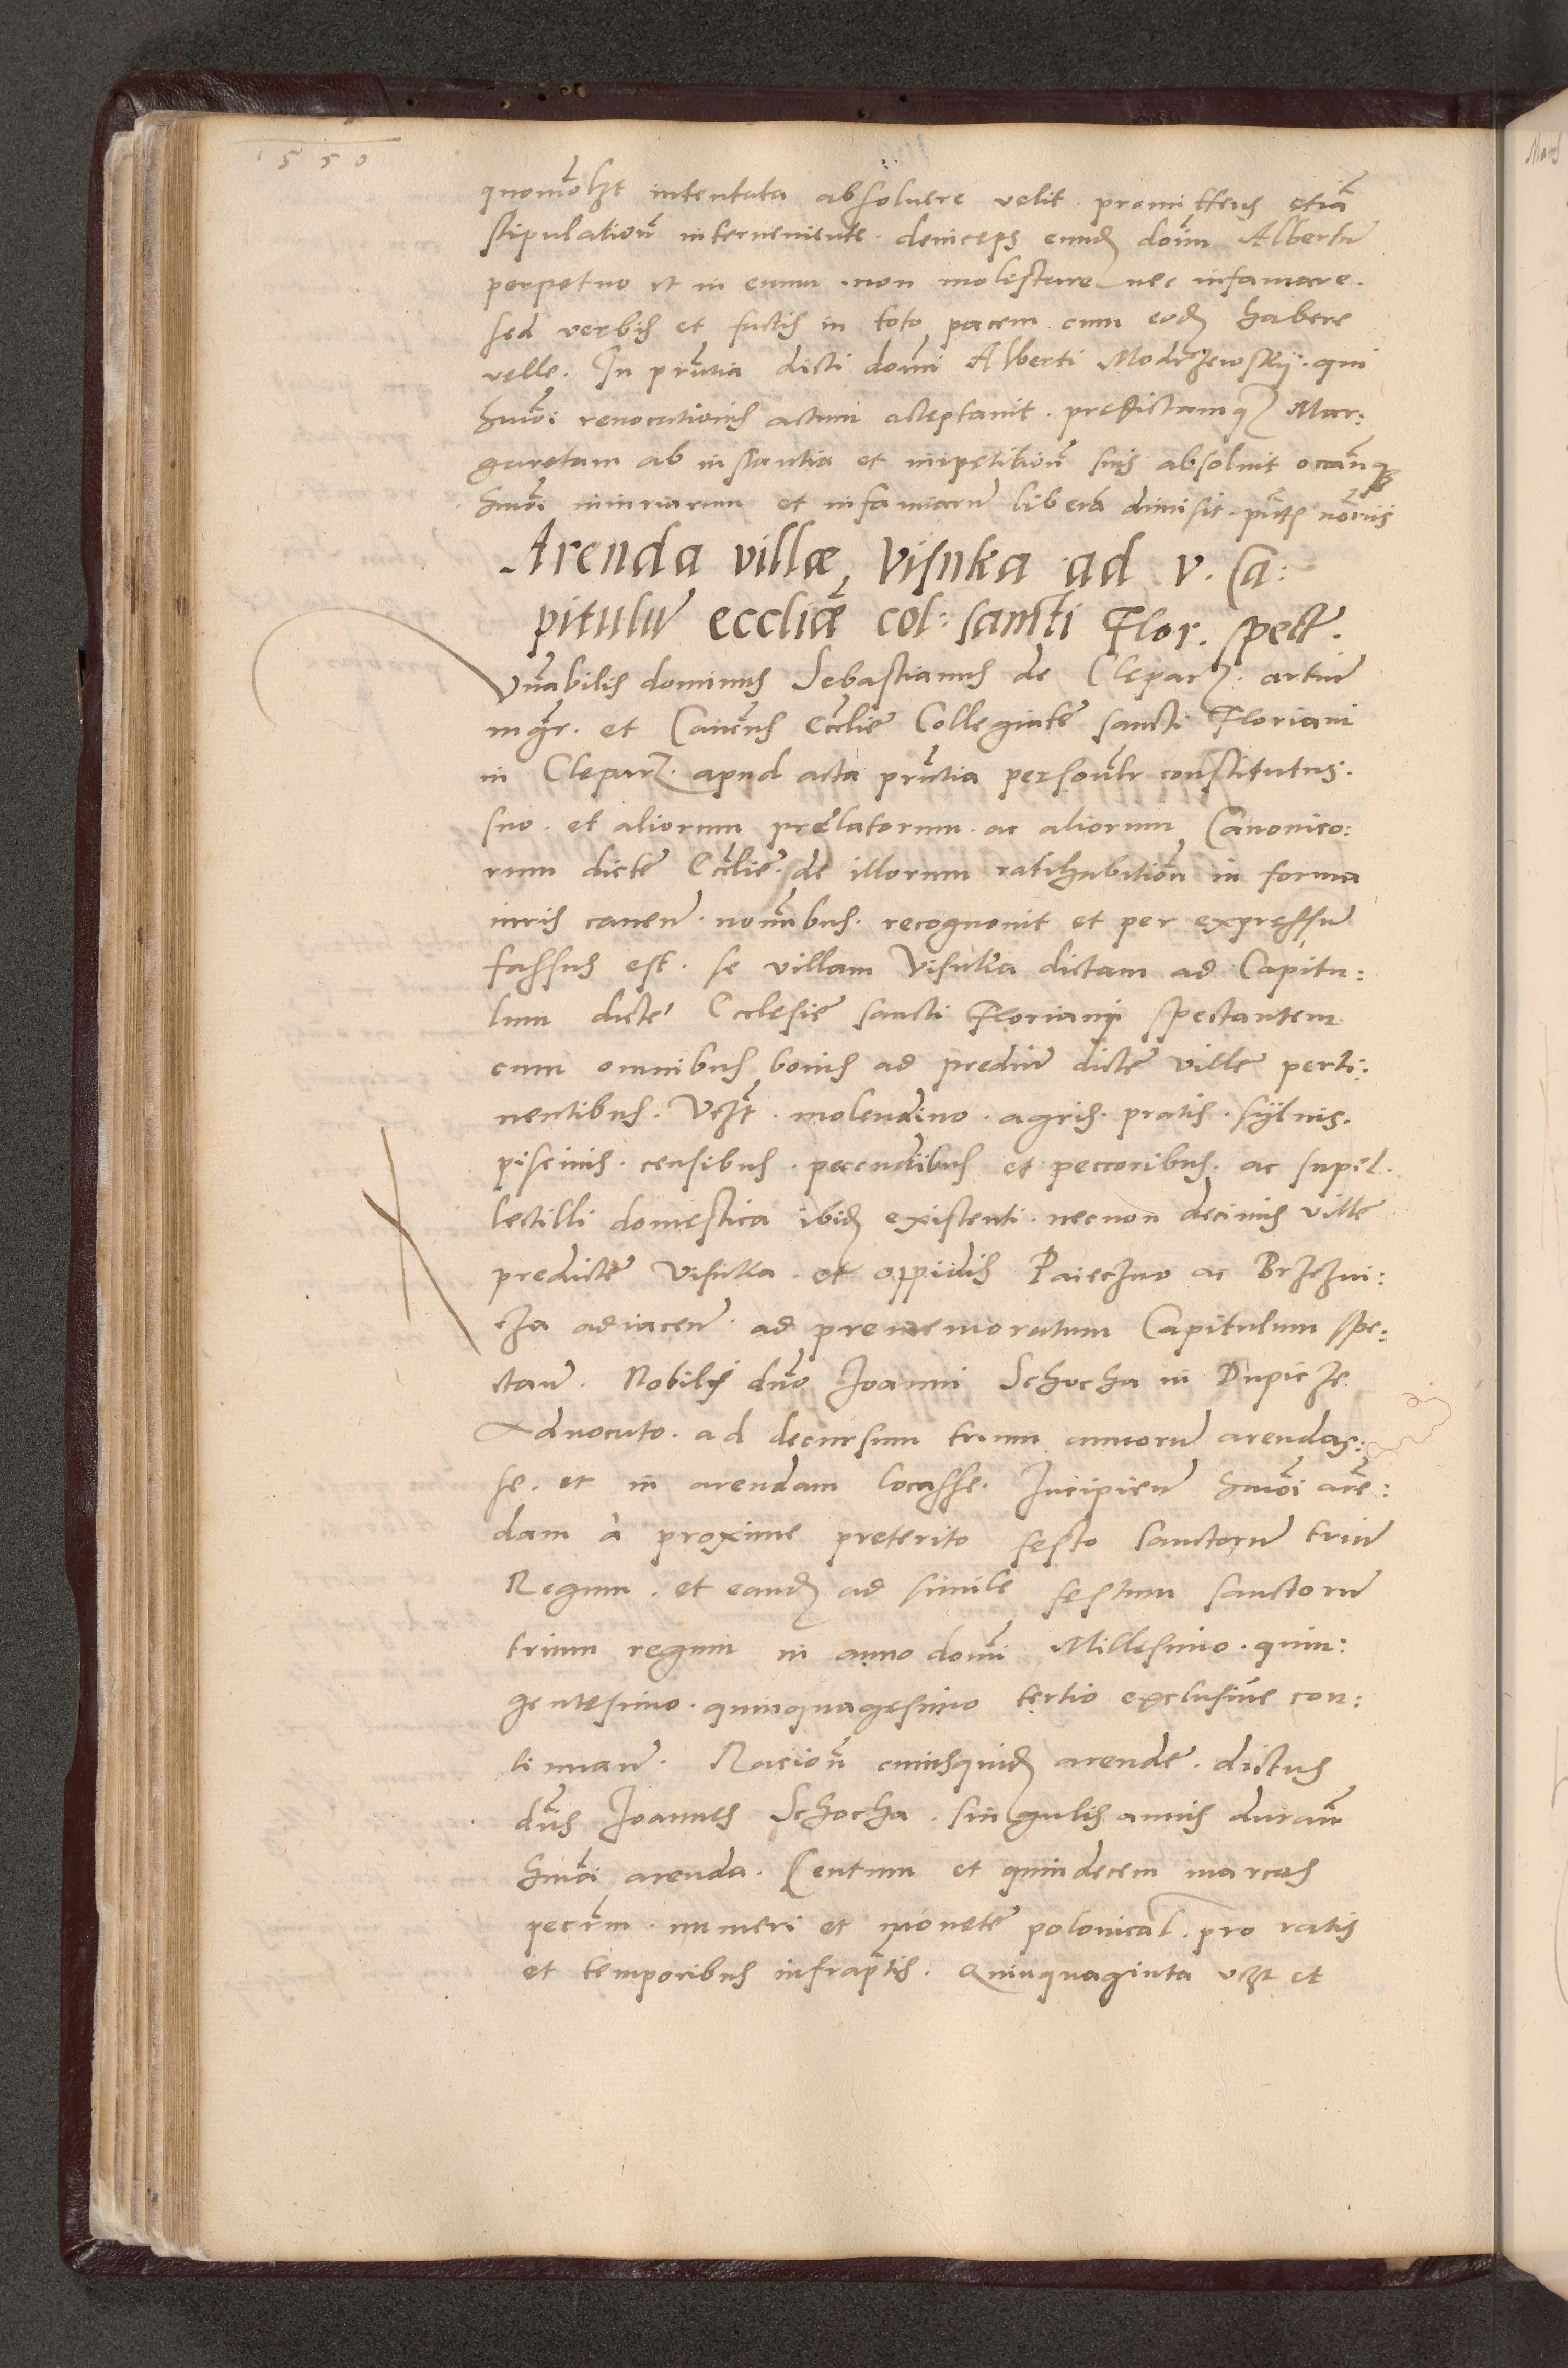 1550
quomolꝫt intentata absoluere velit. promittens etiā
stipulationē interueniente. deinceps eundē dom̄ Albertū
perpetuo et in euum. non molestare nec infamare.
sed verbis et factis in toto pacem cum eodē habere
velle. In pn̄tia dicti dom̄i Alberti Modrzewskij. qui
hmōi reuocationis actum acceptauit. predictamqꝫ Mar:
garetam ab instantia et impetitionē suis absoluit
hmōi iniuriarum et infamiarū liberā dimisit.
Arenda villæ Visnka ad v. Ca:
pitulū eccliæ col: sancti Flor. spect̄.
Vn̄abilis dominus Sebastianus de Clepar?. artiū
mgr̄. et Canc̄us Ecclīe Collegiatę sancti Floriani
in Clepar?. apud acta pn̄tia personlr̄ constitutus.
suo. et aliorum prelatorum. ac aliorum Canonico:
rum dictę Ecclīe. de illorum ratihabitionē in forma
iuris cauen̄. nom̄ibus. recognouit et per expressū
fassus est. se villam Visnka dictam ad Capitu:
lum dictę Ecclesię sancti Florianij spectantem
cum omnibus bonis ad prediū dictę villę perti:
nentibus. Vꝫlt. molendino. agris. pratis. syluis.
piscinis. censibus. pecudibus et peccoribus. ac supel.
lectilli domestica ibidē existenti. necnon decimis villę
predictę Visnka. et oppidis Paieczno ac Brzezni:
cza adiacen̄. ad prememoratum Capitulum spe:
ctan̄. Nobili dn̄o Joanni Schocha in Dupicze
Aduocato. ad decursum trium annorū arendas:
se. et in arendam locasse. Incipien̄ hmōi arē:
dam à proxime preterito festo sanctorū triū
Regum. et eandē ad simile festum sanctorū
trium regum in anno dom̄i Millesimo. quin:
gentesimo. quinquagesimo tertio exclusiue con:
tinuan̄. Racionē cuiusquidē arendę. dictus
dn̄s Joannes Schocha. singulis annis duran̄
hmōi arenda. Centum et quindecem marcas
pecūm. numeri et monetę polonical. pro ratis
et temporibus infrapt̄is. Quinquaginta vꝫlt et